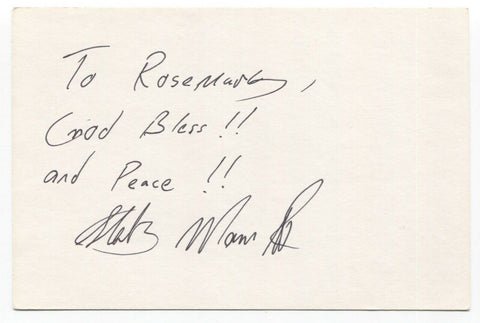 To Rosemary,
God Bless!!
and Peace!!